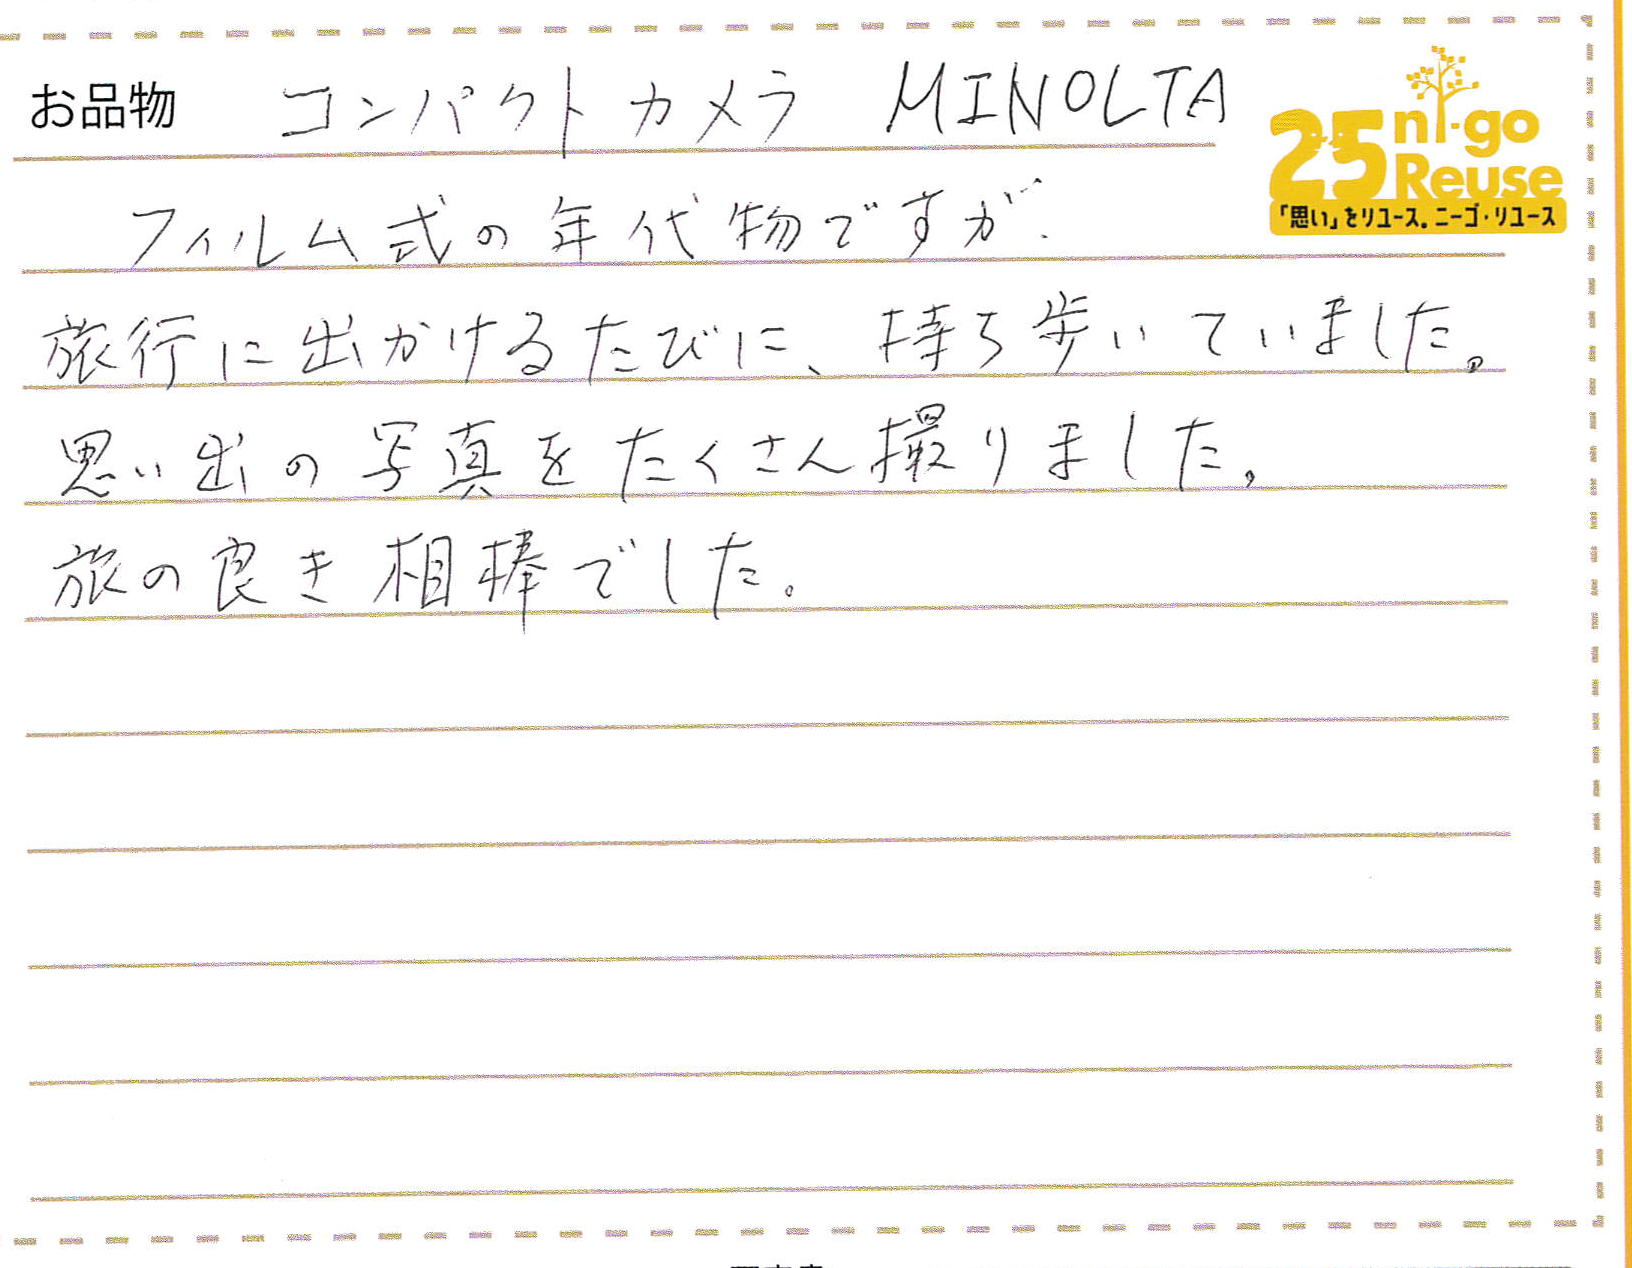 お品物 コンパクトカメラ MINOLTA
25 ni-go
Reuse
「思い」をリユース。ニーゴ・リユース
フィルム式の年代物ですが、
旅行に出かけるたびに、持ち歩いていました。
思い出の写真をたくさん撮りました。
旅の良き相棒でした。